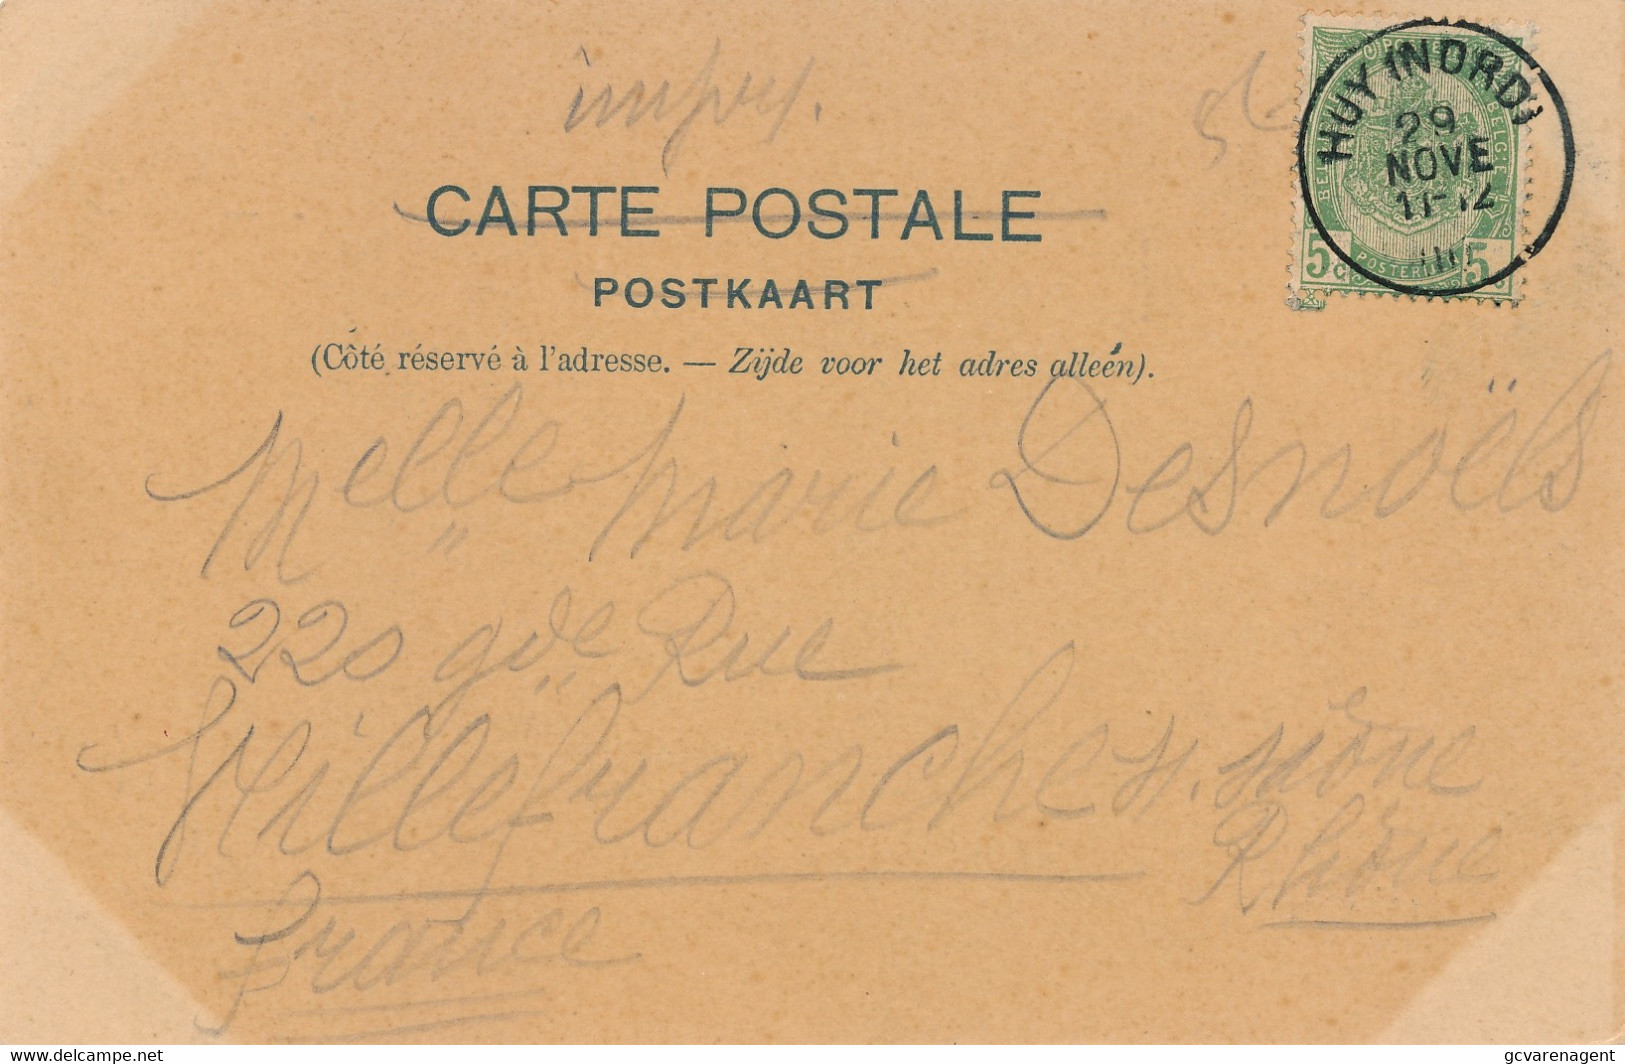 HUY (NORD)
29
NOVE
11-12
5 5
CARTE POSTALE
POSTKAART
(Côté réservé à l'adresse. — Zijde voor het adres alleen).
Melle Marie Desnoëls
220 gde Rue
Villefranche s. Saône
Rhône
France
www.delcampe.net
gcvarenagent